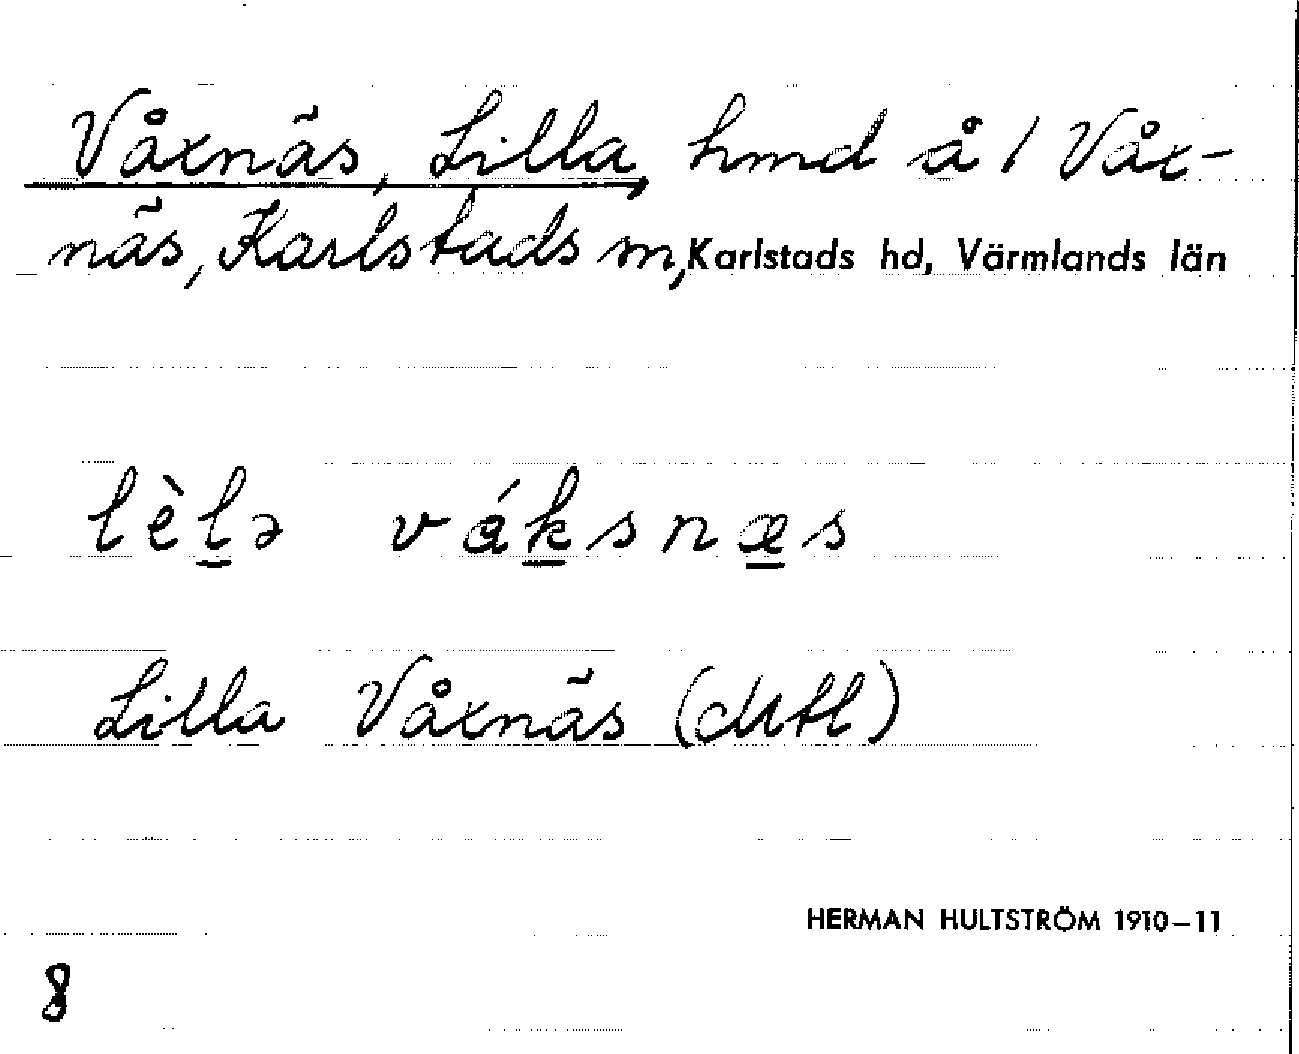 Våxnäs, Lilla, hmd å 1 Våx-
näs, Karlstads m, Karlstads hd, Värmlands län
lèl̲ə vák̲snæ̲s
Lilla Våxnäs (dubl)
HERMAN HULTSTRÖM 1910-11
8